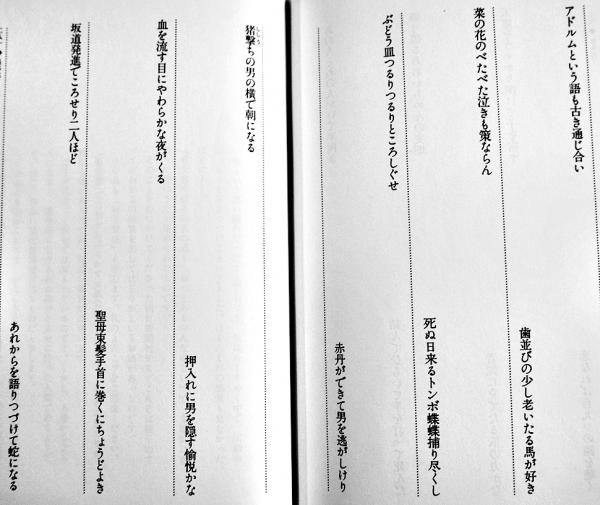 アドルムという語も古き通じ合い
歯並びの少し老いたる馬が好き
菜の花のべたべた泣きも策ならん
死ぬ日来るトンボ蝶蝶捕り尽くし
ぶどう皿つるりつるりところしぐせ
赤丹ができて男を逃がしけり
猪撃ちの男の横で朝になる
押入れに男を隠す愉悦かな
血を流す目にやわらかな夜がくる
聖母束髪手首に巻くにちょうどよき
坂道発進でころせり二人ほど
あれからを語りつづけて蛇になる